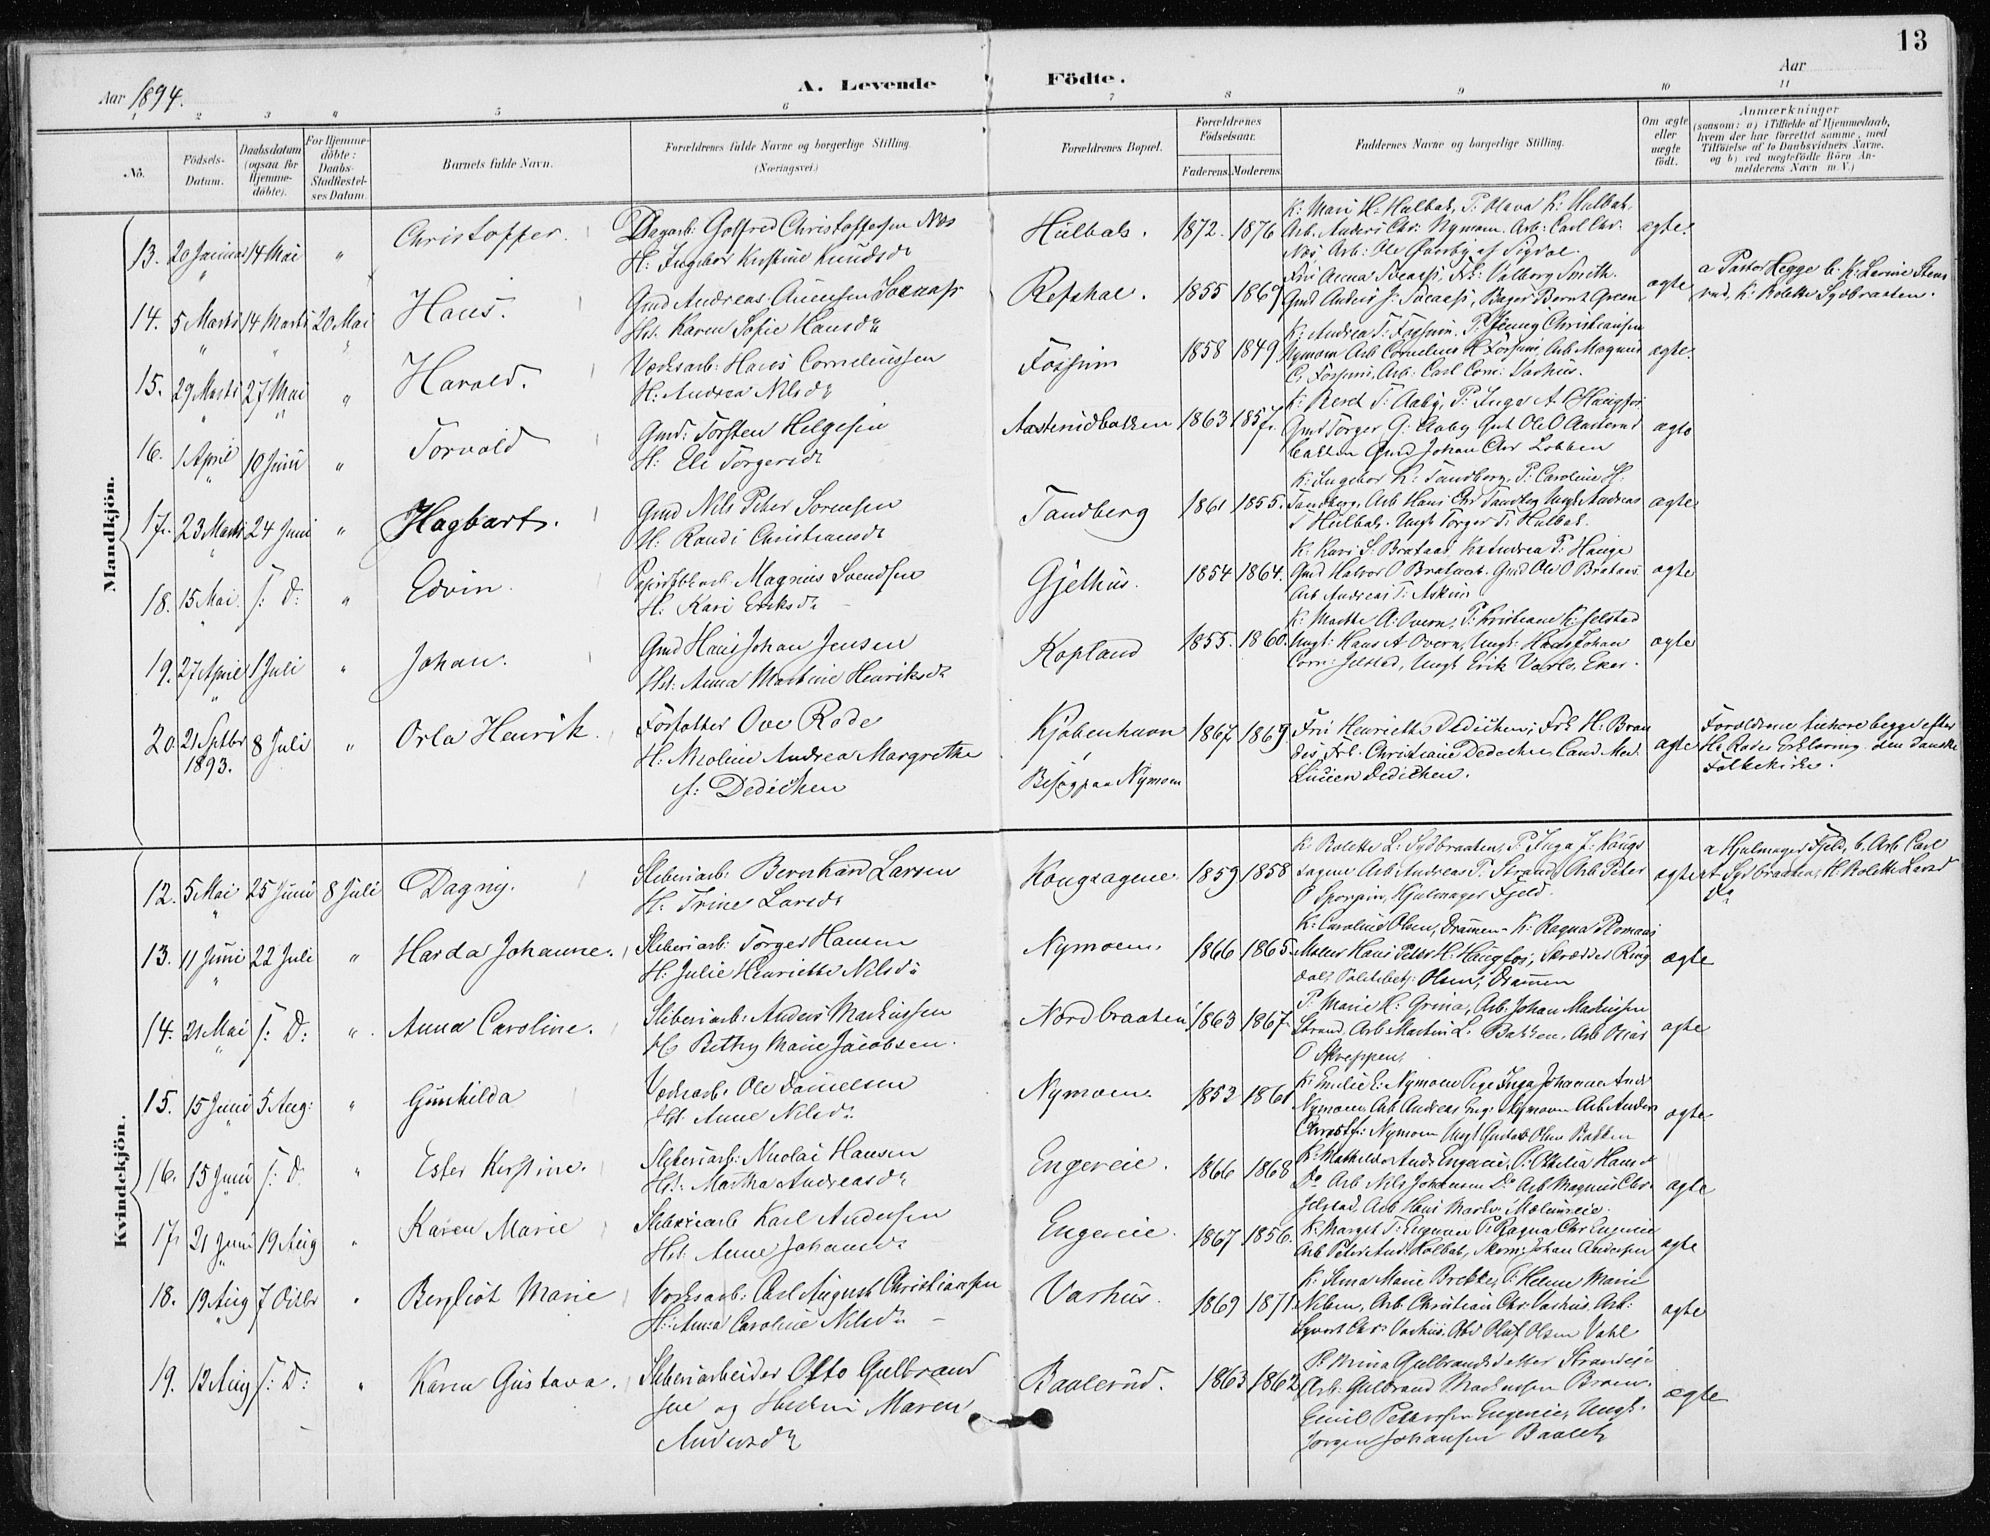 13
Aar 1894.
A. Levende Födte.
Aar
1 2 3 4 5 6 7 8 9 10 11
No.
Födsels-Datum.
Daabsdatum (ogsaa for Hjemme-döbte).
For Hjemme-döbte: Daabs-Stadfæstel-ses Datum
Barnets fulde Navn.
Forældrenes fulde Navne og borgerlige Stilling. (Næringsvei.)
Forældrenes Bopæl.
Forældrenes Födselsaar.
Faderens. Moderens.
Faddernes Navne og borgerlige Stilling.
Om ægte eller uægte födt.
Anmærkninger
(saasom: a) i Tilfælde af Hjemmedaab,
hvem der har forrettet samme, med
Tilföielse af to Daabsvidners Navne.
og b) ved uægtefödte Börn An-
melderens Navn m V.)
Mandkjön.
13. 20 Januar 14 Mai " Christoffer.
Dagarb: Golfred Christoffersen Næs
H: Ingebor Kirstine Knudsdr
Hulbak. 1872. 1876
K: Mari H: Hulbak, P: Olava K: Hulbak,
Arb. Anders Chr: Nymoen. Arb: Carl Chr:
Næs Arb: Ole af Sigdal.
ægte.
14. 5 Marts 14 Marts 20 Mai Hans.
Gmd Andreas
Hst. Karen Sofie Hansdr
1855 1869
Fru Anna Frk: Valborg Smith.
Gmd Anders J: Bager Bernt Green
ægte
a Pastor Hegge b. K: Lovine Stens
rud, K. Rolette Sydbraaten.
15. 29 Marts 27 Mai " Harald.
Værksarb: Hans Corneliussen
H: Andrea Nilsdr
Fossum 1858 1849
K: Andrea T: Fossum. P: Jenny Christiansen
Nymoen Arb Cornelius H Fossum, Arb. Magnus
C: Fossum, Arb. Carl Corn: Varhus.
ægte.
16. 1 April 10 Juni " Torvald
Gmd: Torsten Helgesen
H: Eli Torgersdr
Aasterudbakken 1863 1857.
K: Beret T: Aaby, P: Inga A Haugfos
Gmd Torger G: Aaby Gmd Ole O Aasterud
bakken Gmd Johan Chr Lobben
ægte
17. 23 Marts 24 Juni " Hagbart.
Gmd Nils Peter Sørensen
H: Randi Christiansdr
Tandberg 1861 1855.
K: Ingebor K: Tandberg, P: Caroline H:
Tandberg, Arb Hans Chr Tandbeg Ungk Andreas
T Hulbak. Ungk Torger T: Hulbak.
ægte
18. 15 Mai. S: D: " Edvin.
Magnus Svendsen
H: Kari Eriksdr
Gjelhus. 1854 1864.
K: Kari S. Brataas, K: Andrea P: Hauge
Gmd Halvor O Brataas. Gmd Ole O Brataas.
Arb Andreas T: Askim
ægte
19. 27 April 1 Juli " Johan.
Gmd Hans Johan Jensen
Hst: Anna Martine Henriksdr
Kopland 1855. 1860.
K: Marthe A: Overn, P: Kristiane K: Jelstad
Ungk: Hans A Overn, Ungk: Hans Johan
Corn: Jelstad, Ungk Erik Eker.
ægte
20. 21 Sptbr 1893. 8 Juli " Orla Henrik.
Forfatter Ove Rode
H: Nicoline Andrea Margrethe
f: Dedichen
Kjøbenhavn
Besøg paa Nymoen
1867 1869
Fru Henriette Dedichen; Frk H: Bran
des Frk: Christiane Dedechen, Cand. Med.
Lucien Dedichen.
ægte
Forældrene tilhøre begge efter
Hr Rodes Erklæring den danske
Folkekirke.
Kvindekjön.
12. 5 Mai 25 Juni 8 Juli Dagny.
Sliberiarb: Bernhard Larsen
H: Trine Larsdr
Kongsagene 1859 1858
K: Rolette L: Sydbraaten, P: Inga J: Kongs
sagene Arb Andreas P. Strand, Arb Peter
Hjulmager Fjeld.
ægte
a Hjulmager Fjeld, b. Arb Carl
A Sydbraaten, H. Rolette Larsd
Do
13. 11 Juni 22 Juli " Harda Johanne.
Sliberiarb: Torger Hansen
H: Julie Henriette Nilsdr
Nymoen. 1866 1865
K: Caroline Olsen, Drammen. K: Ragna Romani
Møller Hans Peter H: Haugfos, Skrædder Ring
dal, Politibetj: Olsen, Drammen
ægte
14. 21 Mai S: D: " Anna Caroline.
Sliberiarb: Anders Markussen
H: Bethy Marie Jacobsen.
Nordbraaten 1863 1867.
P: Marie H: Grina, Arb. Johan Markussen
Strand, Arb. Martin L. Bakken, Arb Oscar
O Skreppen.
ægte
15. 15 Juni 5 Aug: " Gunhilda
Værksarb. Ole Danielsen
Hst. Anne Nilsdr
Nymoen. 1853 1861
K: Emilie E: Nymoen Pige Inga Johanne Andr
Nymoen, Arb Andreas Eng: Nymoen Arb Anders
Christf: Nymoen Ungk Gustav Olsen Bakken
ægte.
16. 15 Juni S: D. " Ester Kirstine.
Sliberiarb: Nicolai Hansen
Hst: Martha Andreasdr
Engereie. 1866 1868
K: Mathilde Andr Engereie, P: Othilia Hansd
Do Arb Nils Johansen Do Arb Magnus Chr:
Jelstad, Arb Hans Martin
ægte
17. 21 Juni 19 Aug " Karen Marie
Sliberiarb Karl Andersen
Hst. Anne Johansdr
Engereie. 1867 1856.
K: Marget T: Engereie P: Ragna Chr Engereie
Arb Peter And: Hulbak, Skom: Johan Andersen
ægte
18. 19 Aug 7 Octbr " Bergliot Marie
Værksarb: Carl August Christiansen
H: Anna Caroline Nilsdr
Varhus. 1869 1871
K: Anna Marie Brekke, P: Helene Marie
Nilsen, Arb. Christian Chr: Varhus. Arb:
Chr: Varhus. Arb Oluf Olsen Vahl
ægte
19. 12 Aug S: D: " Karen Gustava.
Sliberiarbeider Otto Gulbrand
sen og Hustru Maren
Andersdr
Baalerud. 1863 1862
P: Mina Gulbrandsdatter Strandeie
Arb: Gulbrand Markussen Braaten,
Emil Pettersen Engereie, Ungk.
Jørgen Johansen Baaler
ægte